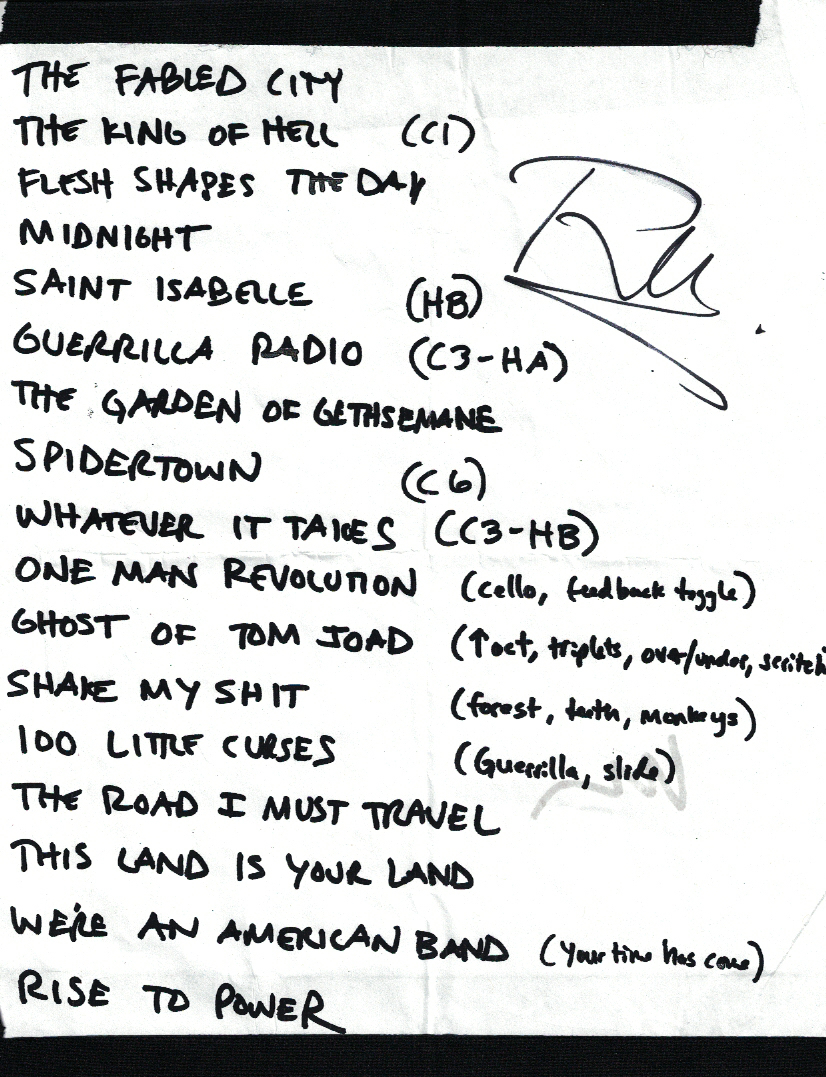 THE FABLED CITY
THE KING OF HELL (C1)
FLESH SHAPES THE DAY
MIDNIGHT
SAINT ISABELLE (HB)
GUERRILLA RADIO (C3-HA)
THE GARDEN OF GETHSEMANE
SPIDERTOWN (C6)
WHATEVER IT TAKES (C3-HB)
ONE MAN REVOLUTION (cello, feedback toggle)
GHOST OF TOM JOAD (↑oct, triplets, over/under, scritch
SHAKE MY SHIT (forest, teeth, monkeys)
100 LITTLE CURSES (Guerrilla, slide)
THE ROAD I MUST TRAVEL
THIS LAND IS YOUR LAND
WE'RE AN AMERICAN BAND (Your time has come)
RISE TO POWER